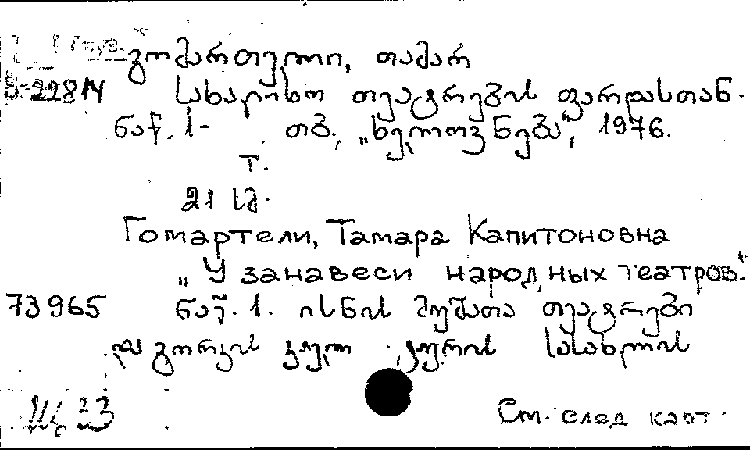 გომართელი, თამარ
სახალხო თეატრების ფარდასთან.
ნაწ. 1- თბ., „ხელოვნება", 1976.
т.
21 სმ.
Гомартели, Тамара Капитоновна
„У занавеси народных театров."
73965 ნაწ. 1. ისნის მუშათა თეატრები
და გორკის
სახლის
См. след карт.